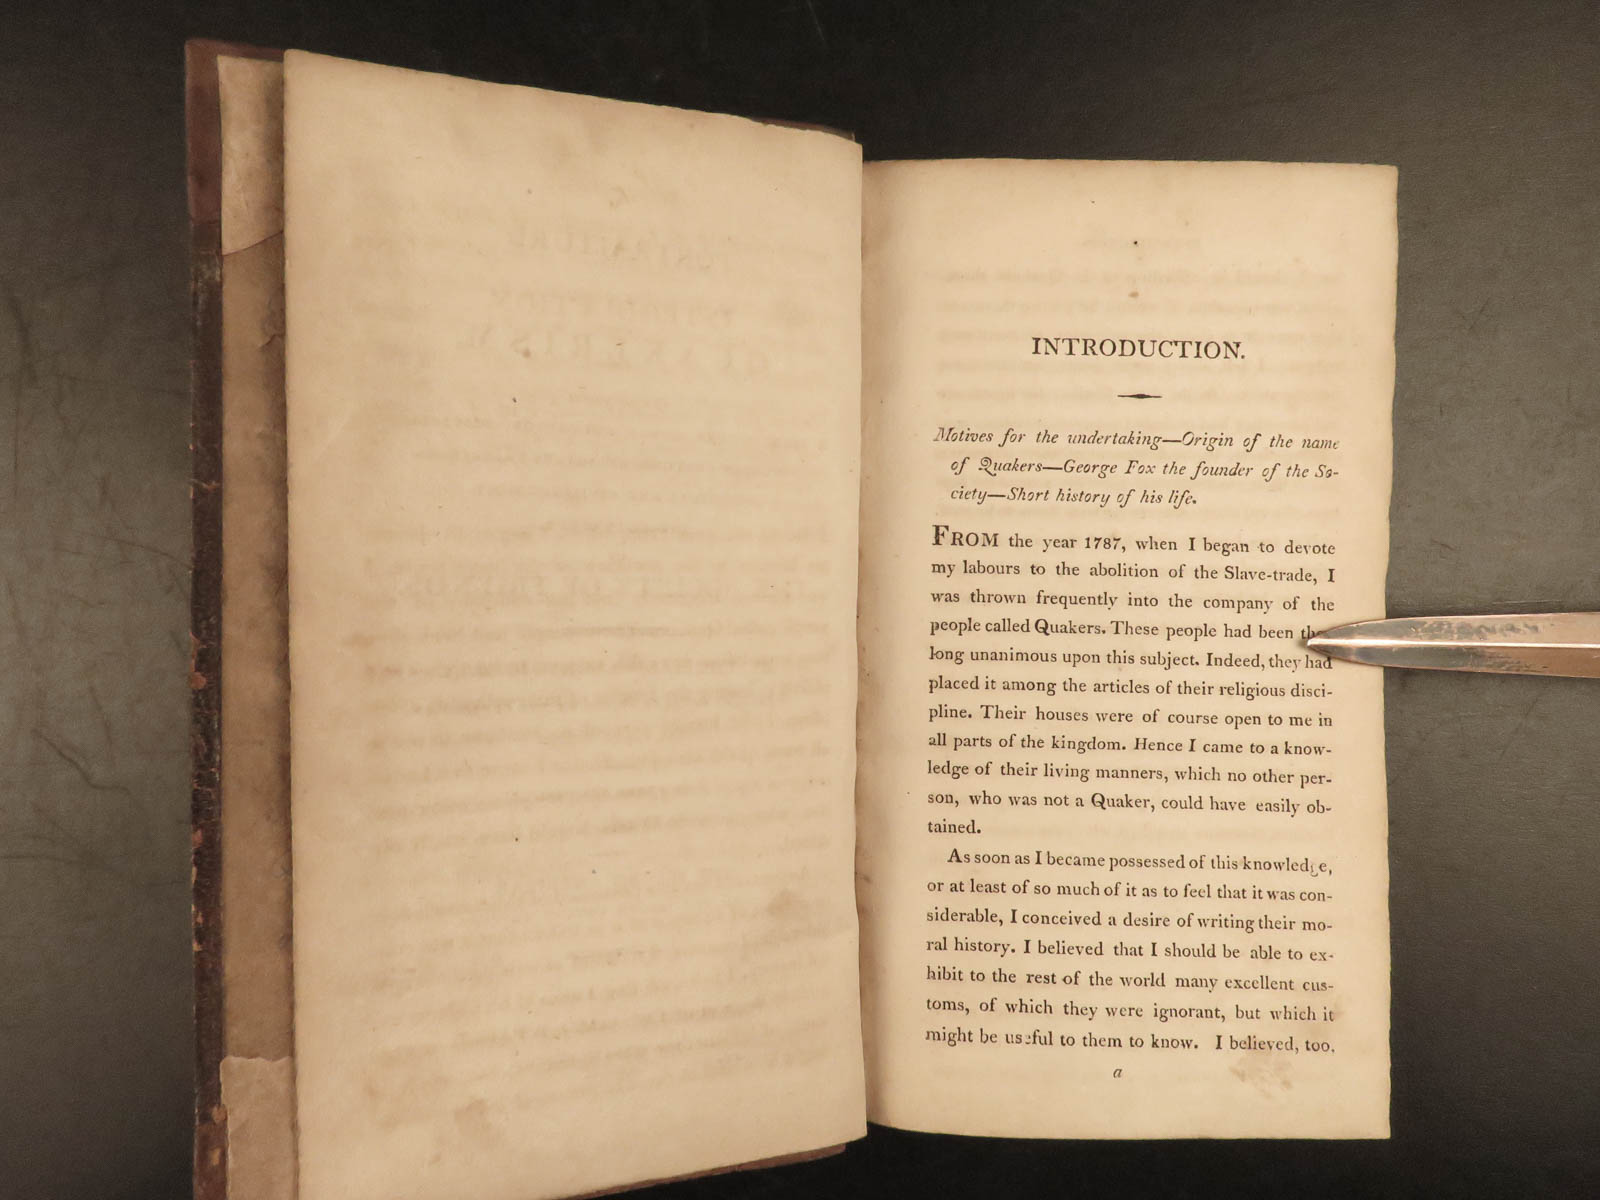 INTRODUCTION.
Motives for the undertaking—Origin of the name
of Quakers—George Fox the founder of the So-
ciety—Short history of his life.
FROM the year 1787, when I began to devote
my labours to the abolition of the Slave-trade, I
was thrown frequently into the company of the
people called Quakers. These people had been
long unanimous upon this subject. Indeed, they had
placed it among the articles of their religious disci-
pline. Their houses were of course open to me in
all parts of the kingdom. Hence I came to a know-
ledge of their living manners, which no other per-
son, who was not a Quaker, could have easily ob-
tained.
As soon as I became possessed of this knowledge,
or at least of so much of it as to feel that it was con-
siderable, I conceived a desire of writing their mo-
ral history. I believed that I should be able to ex-
hibit to the rest of the world many excellent cus-
toms, of which they were ignorant, but which it
might be useful to them to know. I believed, too,
a